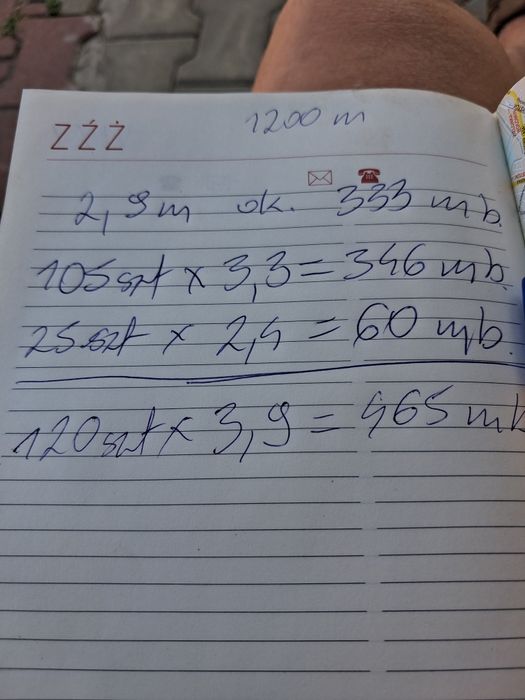 1200 m
Z Ź Ż
2,9m ok. 333 mb.
105szt x 3,3 = 346 mb.
25szt x 2,4 = 60 mb.
120szt x 3,9 = 465 mb